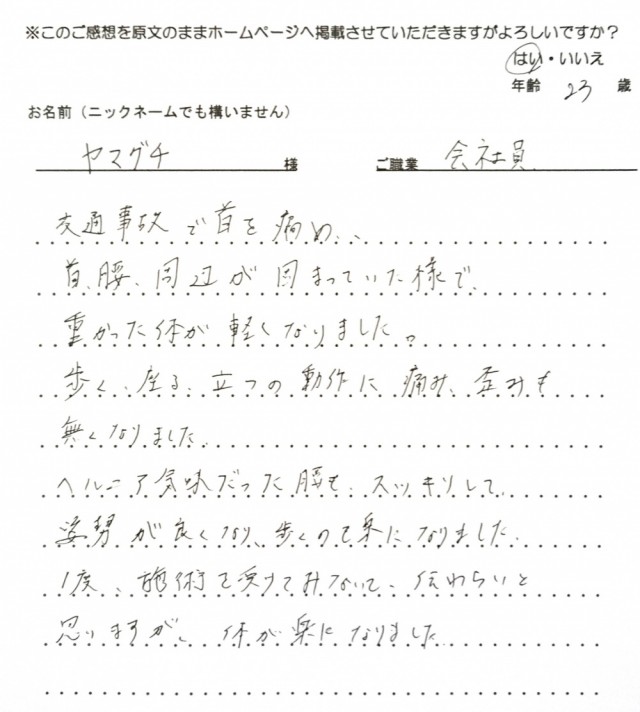 ※このご感想を原文のままホームページへ掲載させていただきますがよろしいですか？
はい・いいえ
年齢 23 歳
お名前（ニックネームでも構いません）
ヤマグチ 様 ご職業 会社員
交通事故で首を痛め、、
首、腰、周辺が固まっていた様で、
重かった体が軽くなりました。
歩く、座る、立つの動作に痛み、歪みも
無くなりました。
ヘルニア気味だった腰も、スッキリして、
姿勢が良くなり、歩くのも楽になりました。
1度、施術を受けてみないと、伝わらいと
思いますが、体が楽になりました